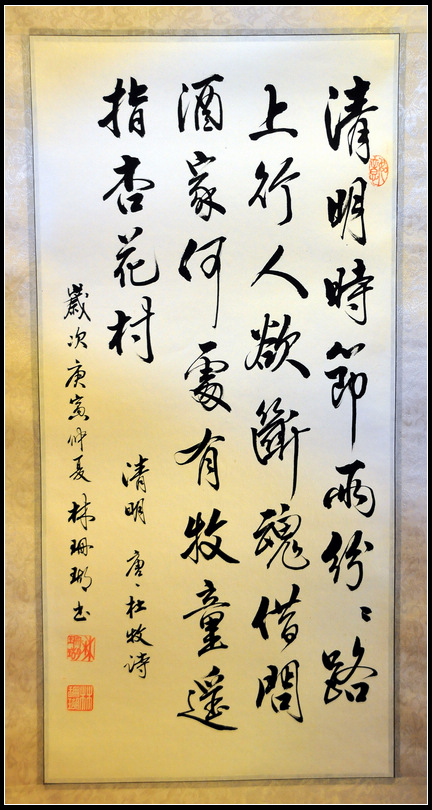 清明時節雨紛〻路
上行人欲斷魂借問
酒家何處有牧童遥
指杏花村
清明 唐、杜牧诗
歲次庚寅仲夏林珊瑚书